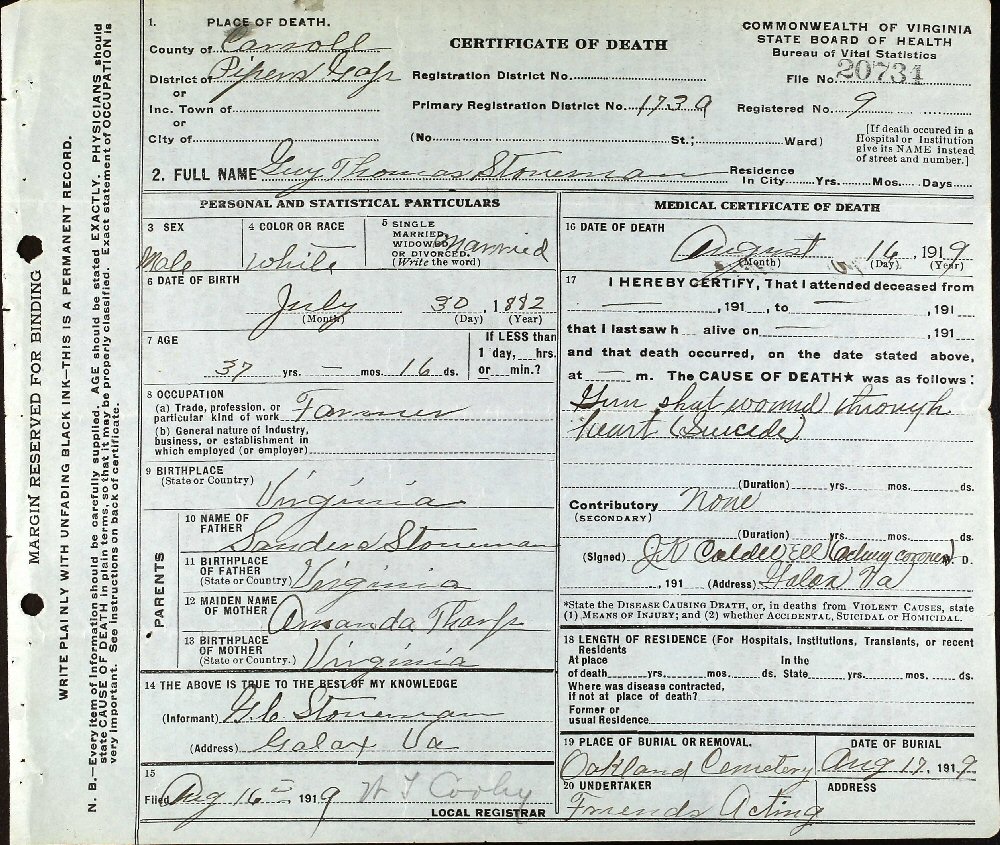 MARGIN RESERVED FOR BINDING
WRITE PLAINLY WITH UNFADING BLACK INK—THIS IS A PERMANENT RECORD.
N. B.—Every item of information should be carefully supplied. AGE should be stated EXACTLY. PHYSICIANS should
state CAUSE OF DEATH in plain terms, so that it may be properly classified. Exact statement of OCCUPATION is
very important. See instructions on back of certificate.
1. PLACE OF DEATH.
County of Carroll
District of Pipers Gap
or
Inc. Town of
or
City of
CERTIFICATE OF DEATH
Registration District No.
Primary Registration District No. 173a
(No. St.; Ward)
COMMONWEALTH OF VIRGINIA
STATE BOARD OF HEALTH
Bureau of Vital Statistics
File No. 20734
Registered No. 9
[If death occured in a
Hospital or Institution
give its NAME instead
of street and number.]
2. FULL NAME Guy Thomas Stoneman
Residence
In City Yrs. Mos. Days
PERSONAL AND STATISTICAL PARTICULARS
3 SEX
Male
4 COLOR OR RACE
White
5 SINGLE
MARRIED,
WIDOWED,
OR DIVORCED.
(Write the word)
Married
6 DATE OF BIRTH
July 30, 1882
(Month) (Day) (Year)
7 AGE
37 yrs. — mos. 16 ds.
If LESS than
1 day, hrs.
or min.?
8 OCCUPATION
(a) Trade, profession, or
particular kind of work Farmer
(b) General nature of Industry,
business, or establishment in
which employed (or employer)
9 BIRTHPLACE
(State or Country)
Virginia
PARENTS
10 NAME OF
FATHER
Sanders Stoneman
11 BIRTHPLACE
OF FATHER
(State or Country) Virginia
12 MAIDEN NAME
OF MOTHER
Amanda Tharp
13 BIRTHPLACE
OF MOTHER
(State or Country.) Virginia
14 THE ABOVE IS TRUE TO THE BEST OF MY KNOWLEDGE
(Informant) G.C. Stoneman
(Address) Galax Va
15
Filed Aug 16 1919
LOCAL REGISTRAR
MEDICAL CERTIFICATE OF DEATH
16 DATE OF DEATH
August 16, 1919
(Month) (Day) (Year)
17
I HEREBY CERTIFY, That I attended deceased from
, 191 , to , 191
that I last saw h alive on , 191
and that death occurred, on the date stated above,
at — m. The CAUSE OF DEATH★ was as follows:
Gun shut wound through
heart (Suicide)
(Duration) yrs. mos. ds.
Contributory None
(SECONDARY)
(Duration) yrs. mos. ds.
(Signed) J.K Caldwell (Acting coroner) D.
, 191 (Address) Galax Va
*State the DISEASE CAUSING DEATH, or, in deaths from VIOLENT CAUSES, state
(1) MEANS OF INJURY; and (2) whether ACCIDENTAL, SUICIDAL OR HOMICIDAL.
18 LENGTH OF RESIDENCE (For Hospitals, Institutions, Transients, or recent
Residents
At place In the
of death yrs. mos. ds. State yrs. mos. ds.
Where was disease contracted,
if not at place of death?
Former or
usual Residence
19 PLACE OF BURIAL OR REMOVAL.
Oakland Cemetery
DATE OF BURIAL
Aug 17, 1919
20 UNDERTAKER
Friends Acting
ADDRESS